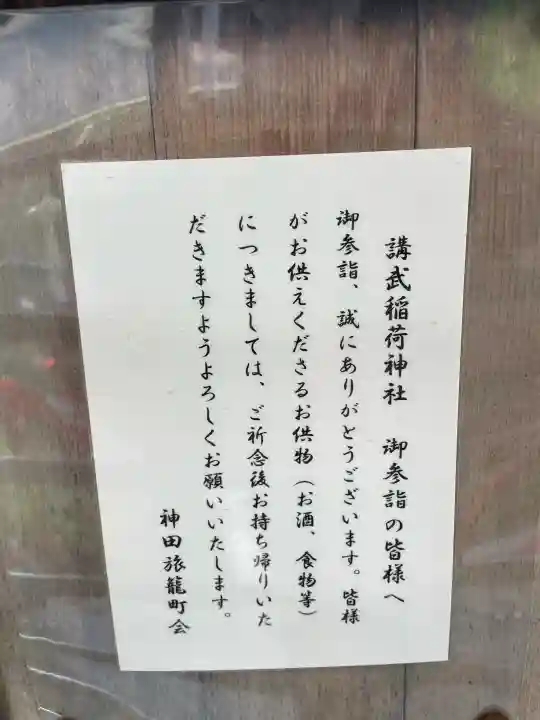 講武稲荷神社　御参詣の皆様へ
御参詣、誠にありがとうございます。皆様
がお供えくださるお供物（お酒、食物等）
につきましては、ご祈念後お持ち帰りいた
だきますようよろしくお願いいたします。
神田旅籠町会